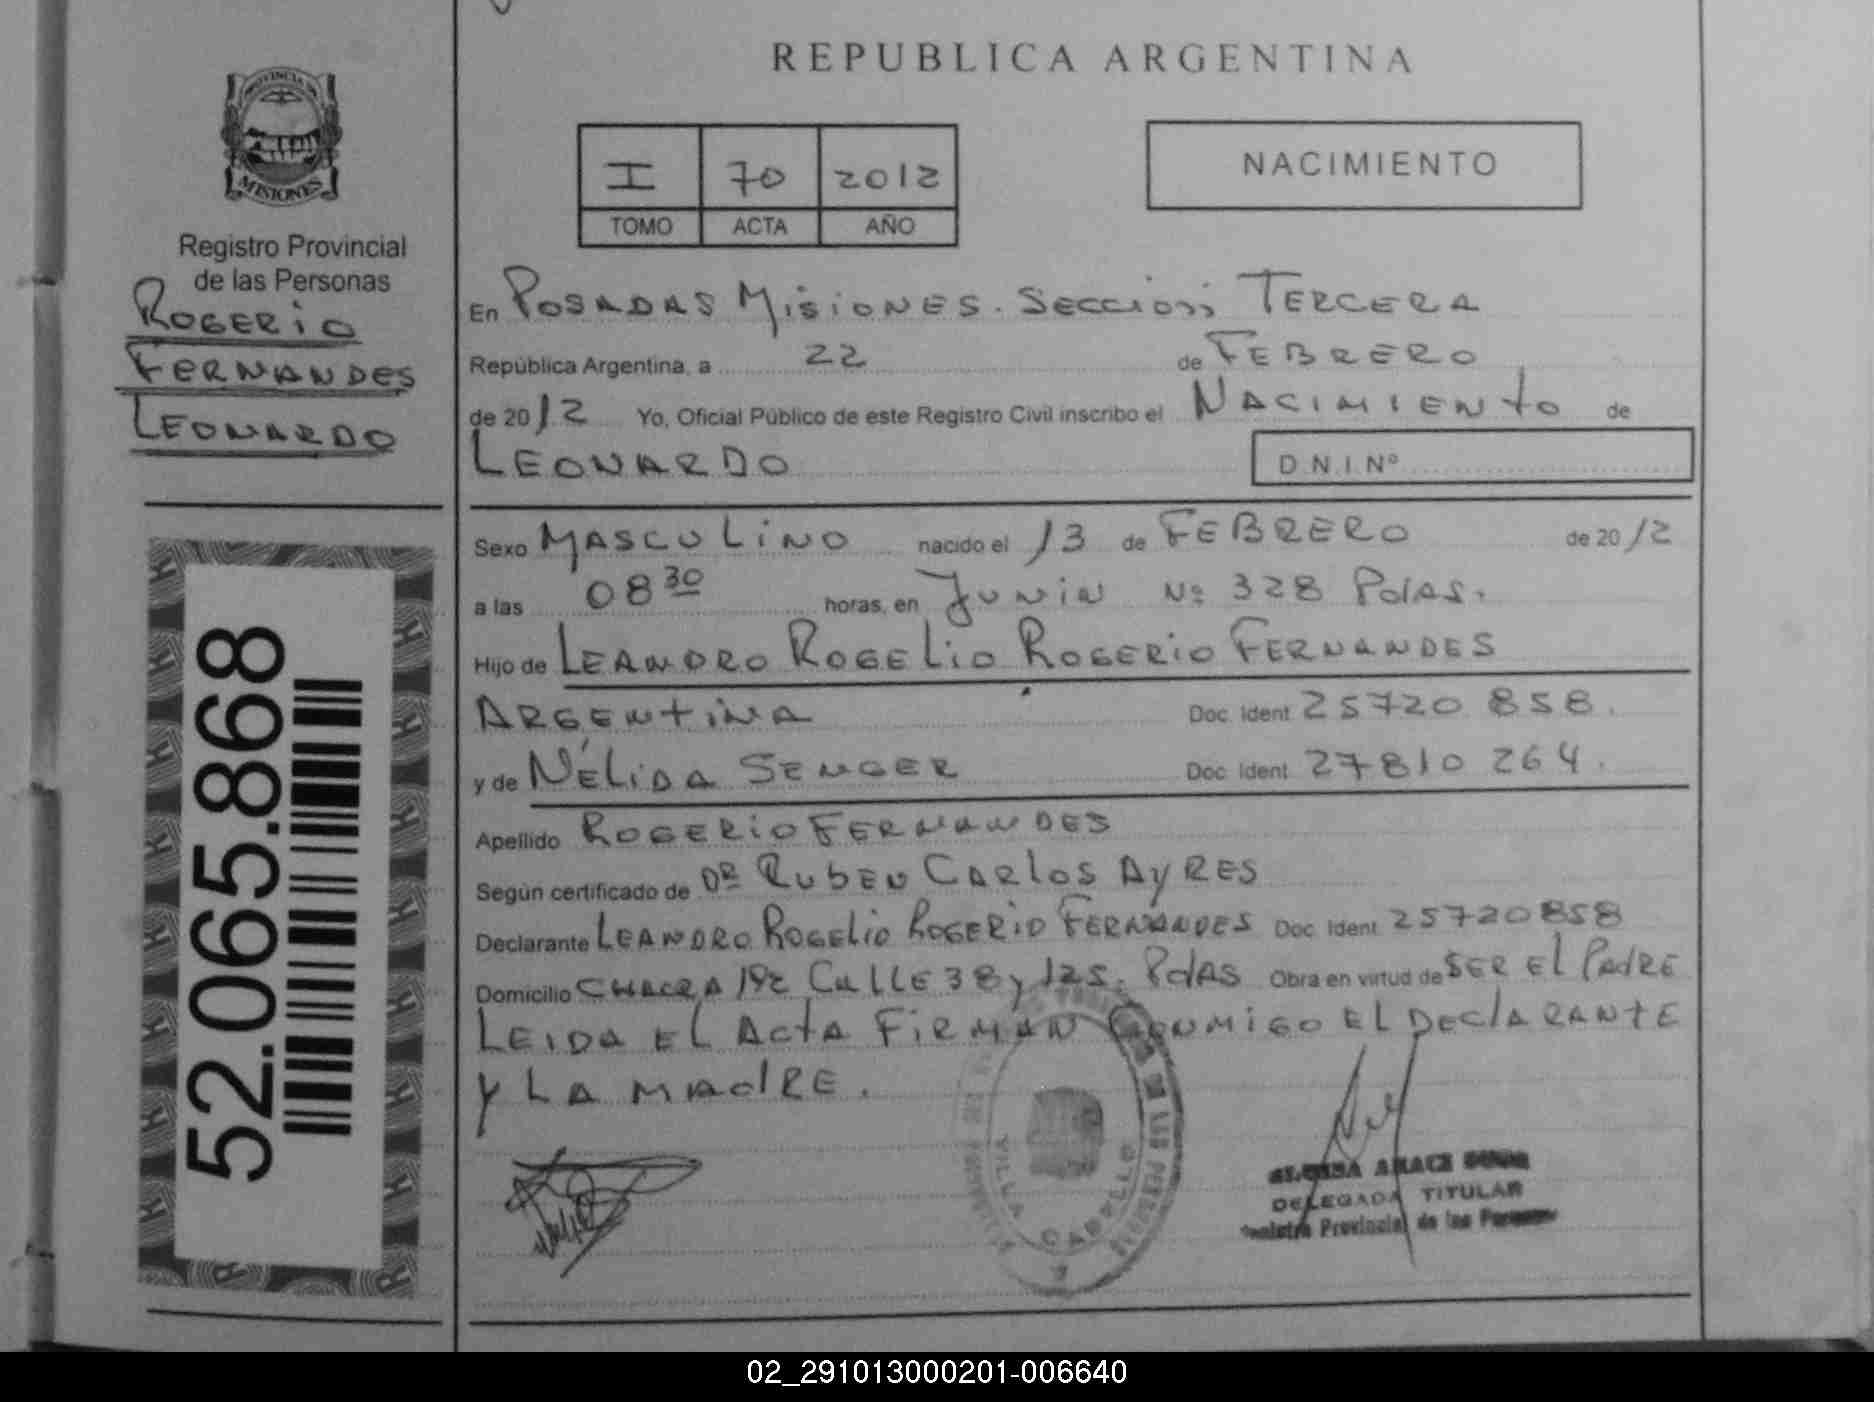 REPUBLICA ARGENTINA
PROVINCIA DE
MISIONES
Registro Provincial
de las Personas
ROGERIO
FERNANDES
LEONARDO
I 70 2012
TOMO ACTA AÑO
NACIMIENTO
En POSADAS MISIONES. SECCION TERCERA
República Argentina, a 22 de FEBRERO
de 2012 Yo, Oficial Público de este Registro Civil inscribo el NACIMIENTO de
LEONARDO D.N.I.Nº
Sexo MASCULINO nacido el 13 de FEBRERO de 2012
a las 08 30 horas, en JUNIN Nº 328 Pdas.
Hijo de LEANDRO ROGELIO ROGERIO FERNANDES
ARGENTINA Doc. Ident. 25720 858.
y de NÉLIDA SENGER Doc. Ident. 27810 264.
Apellido ROGERIO FERNANDES
Según certificado de DR RUBEN CARLOS AYRES
Declarante LEANDRO ROGELIO ROGERIO FERNANDES Doc. Ident. 25720858
Domicilio CHACRA 192 CALLE 38 y 125. PdAS Obra en virtud de SER EL PADRE
LEIDA EL ACTA FIRMAN CONMIGO EL DECLARANTE
Y LA MADRE.
52.065.868
VILLA CABELLO
DELEGADA TITULAR
Registro Provincial de las Personas
02_291013000201-006640